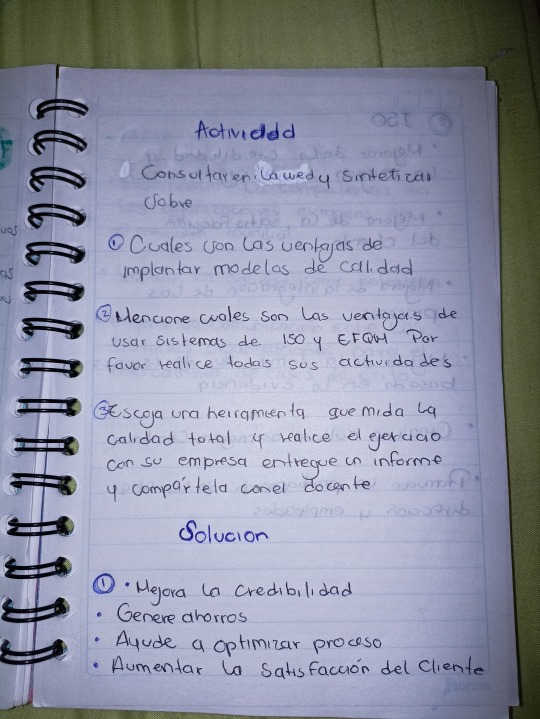 Actividad
Consultar en la wed y sintetizar
sobre
① Cuales son las ventajas de
implantar modelos de calidad
② Mencione cuales son las ventajas de
usar sistemas de ISO y EFQM Por
favor realice todas sus actividades
③ Escoja una herramienta que mida la
calidad total y realice el ejercicio
con su empresa entregue un informe
y compártela con el docente
Solucion
① • Mejora la credibilidad
• Genere ahorros
• Ayude a optimizar proceso
• Aumentar la satisfacción del cliente